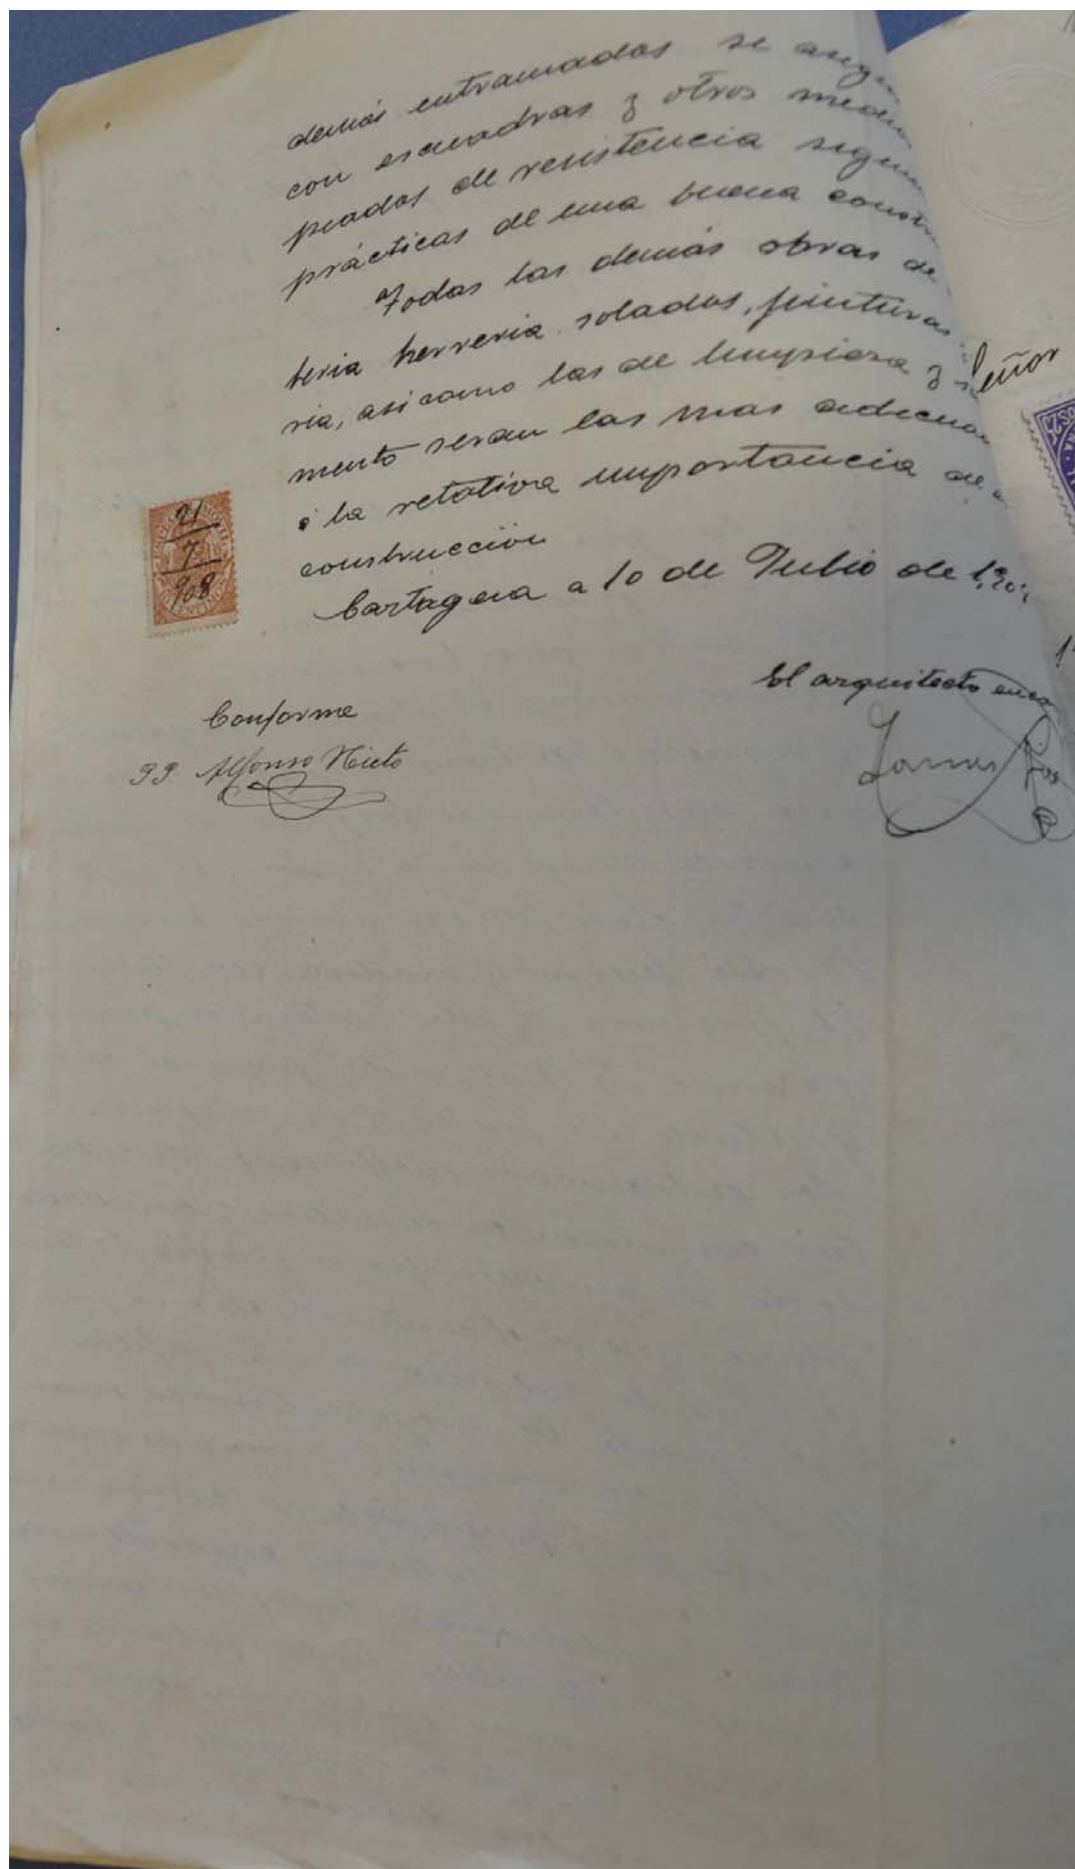 demás entramados se asegu
con escuadras y otros medi
piados de resistencia segun
prácticas de una buena const
Todas las demás obras de
teria herreria solados, pinturas
ria, asi como las de limpieza y
miento seran las mas adecua
á la relativa importancia de
construcción
Cartagena a 10 de Julio de 190
El arquitecto
Conforme
PP Alfonso Nieto
21
7
908
Señor